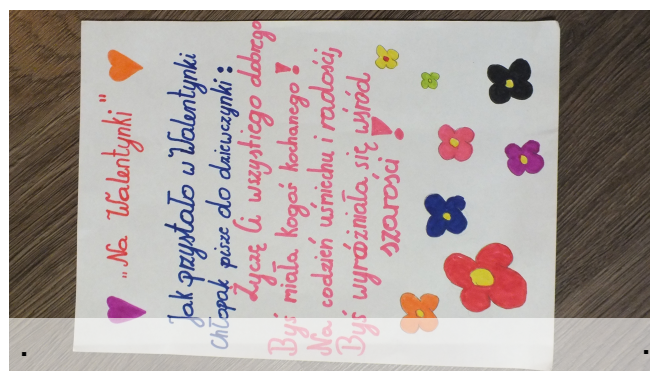 „Na Walentynki"
Jak przystało w Walentynki
Chłopak pisze do dziewczynki:
Życzę Ci wszystiego dobrego
Byś miała kogoś kochanego!
Na codzień uśmiechu i radości,
Byś wyróżniała się wśród
szarości!